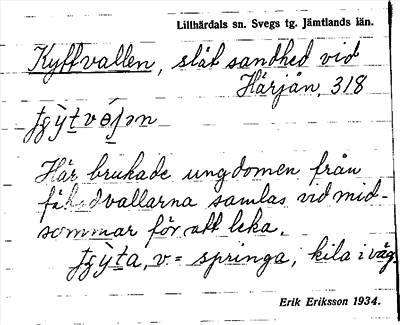 Lillhärdals sn. Svegs tg. Jämtlands län.
Kyttvallen, slät sandhed vid
Härjån, 318
Här brukade ungdomen från
fäbodvallarna samlas vid mid-
sommar för att leka.
v = springa, kila iväg.
Erik Eriksson 1934.